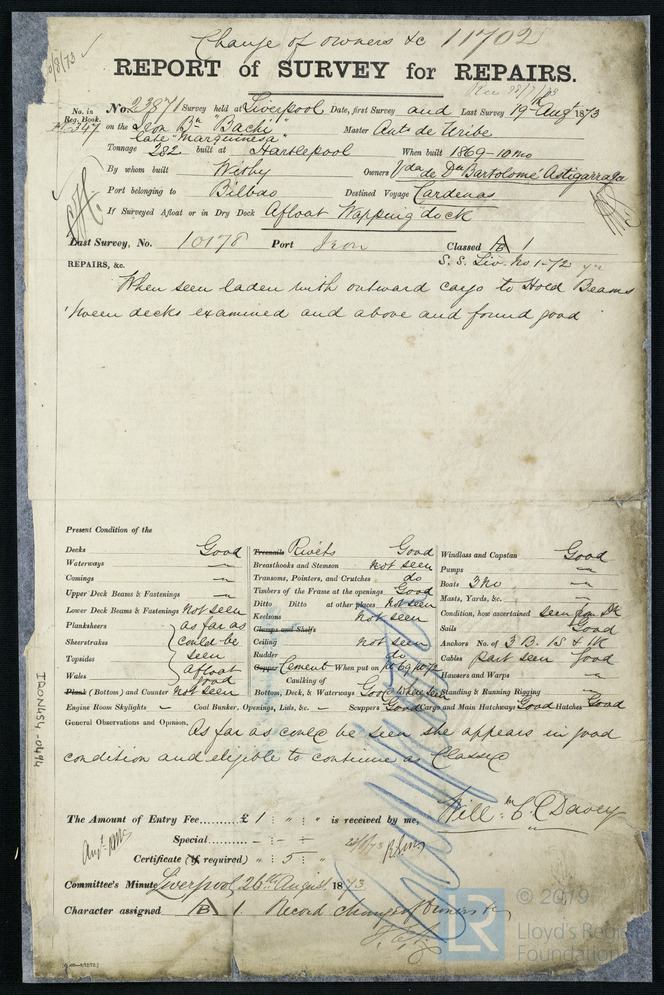 Change of owners &c 11702
REPORT of SURVEY for REPAIRS.
No. in Reg. Book. No. 23871 Survey held at Liverpool Date, first Survey and Last Survey 19th Augt 1873
on the Iron Bn "Bachi" Master Ant. de Uribe
late "Marquinesa"
Tonnage 282 built at Hartlepool When built 1869-10mo
By whom built Withy Owners Vda de Dn Bartolomé Astigarraga
Port belonging to Bilbao Destined Voyage Cardenas
If Surveyed Afloat or in Dry Dock Afloat Wapping dock
Last Survey, No. 10178 Port Iron Classed A 1
S. S. Liv. No 1-72
REPAIRS, &c.
When seen laden with outward cargo to Hold Beams
'tween decks examined and above and found good
Present Condition of the
Decks Good Treenails Rivets Good Windlass and Capstan Good
Waterways " Breasthooks and Stemson not seen Pumps "
Comings " Transoms, Pointers, and Crutches do Boats 3 No "
Upper Deck Beams & Fastenings " Timbers of the Frame at the openings Good Masts, Yards, &c. "
Lower Deck Beams & Fastenings not seen Ditto Ditto at other places not seen Condition, how ascertained seen from Dk
Planksheers as far as Keelsons not seen Sails Good
Sheerstrakes could be Clamps and Shelfs Anchors No. of 3 B. 1S & 1K
Topsides seen Ceiling not seen Cables part seen Good
Wales afloat good Rudder do Hausers and Warps "
Plank (Bottom) and Counter not seen Copper Cement When put on 10/69 10/72 Standing & Running Rigging "
Caulking of
Bottom, Deck, & Waterways Good
Engine Room Skylights - Coal Bunker, Openings, Lids, &c. - Scuppers Good Cargo and Main Hatchways Good Hatches Good
General Observations and Opinion, As far as could be seen she appears in good
condition and eligible to continue as Classed
The Amount of Entry Fee......... £ 1 : " : " is received by me,
Will: m C Davey
Special.....
Certificate (if required) " : 5 : "
Committee's Minute Liverpool, 26th August 1873
Character assigned A 1. Record change of owners &c
IRON454-0494
© 2019
LR
Lloyd's Register
Foundation